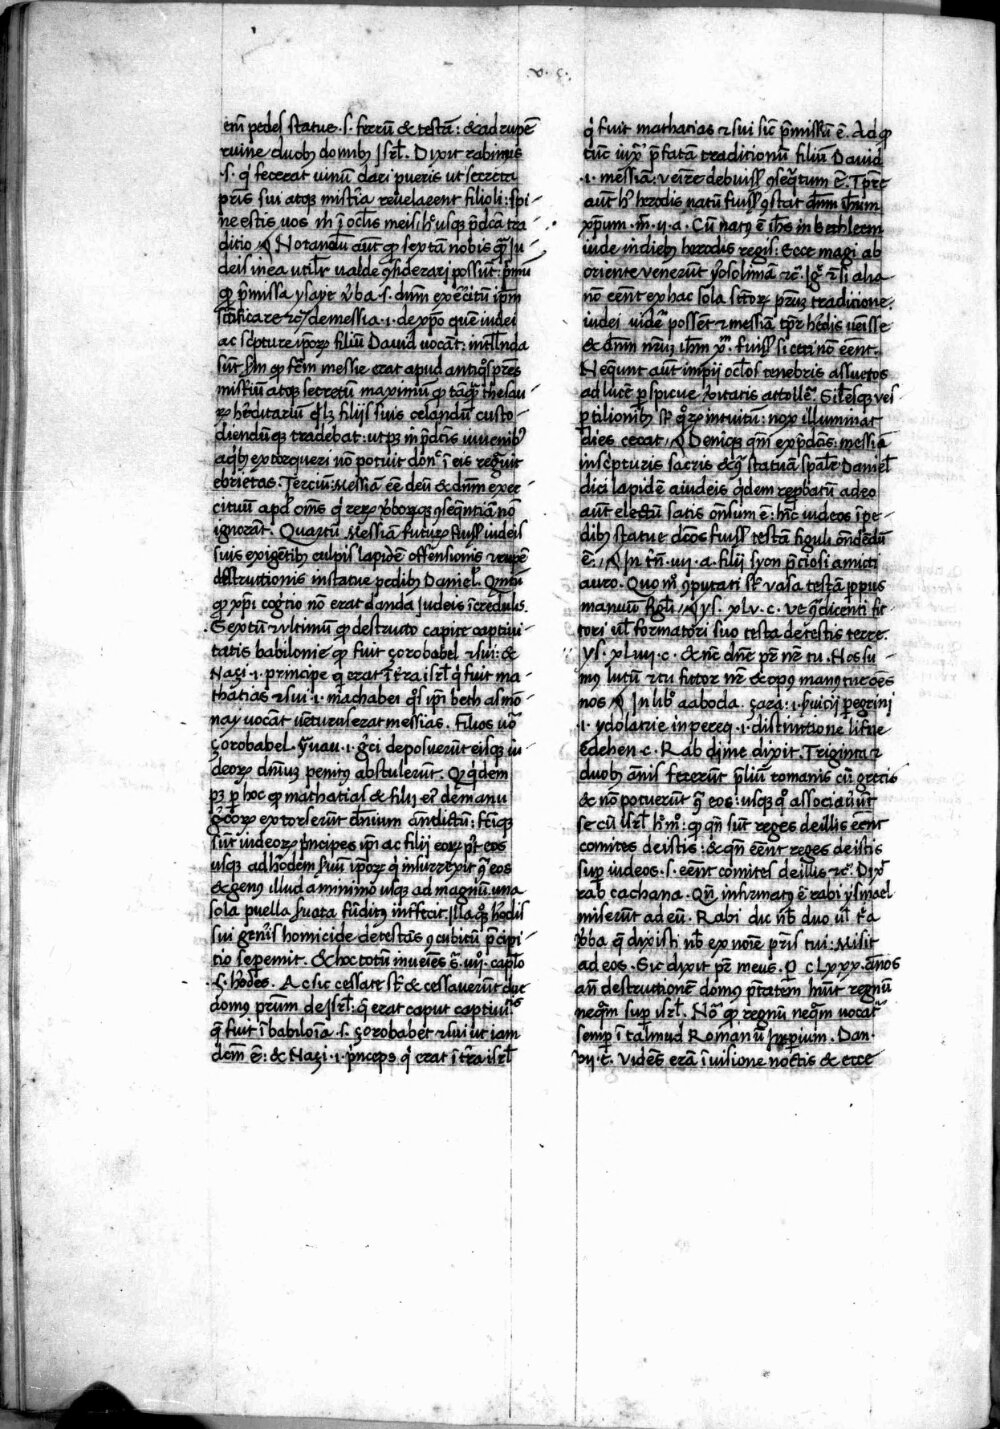 v. c.
em̄ pedes statue .s. ferrū & testā: & ad rupē
ruine duob; domib; Jsrl̄. Dixit rabinus
.s. q̇ fecerat uinū dari pueris ut secreta
pris̄ sui atq; misťia reuelarent filioli: spi-
ne estis uos m̄ ī oclis̄ meis; hc̄ usq; p̄dc̄a tra-
ditio Notandū aūt qp sextā nobis
deis in ea utilr̄ ualde 9siderari possūt: p̄mū
qp p̄missa ysaye v̓ba .s. dn̄m exercituū ip̄m
sc̄ificare &c̄ de messia .i. de xp̄o quē iudei
ac sc̓pture ip̄orꝝ filiū Dauid uocāt: intll̄nda
sūt
mist̓iū atq; secretum maximū qp tāqm̄ thesau-
rꝝ he̓ditariū filiis suis celandū custo-
diendūq; tradebat: utp; in p̄dc̄is iuuenib;
a qb; extorqueri nō potuit donc̄ ī eis regnuit
ebrietas. Terciū: Messiā ēē deū & dn̄m exer-
cituū apd̓ om̄s q̇ rerꝝ v̓borq; 9seqn̄tiā nō
ignorāt. Quartū Messiā futurꝝ fuiss̄ iudeis
suis exigētib; culpis lapidē offensionis & rupē
destructionis in statue pedib; Daniel̄.
qp xp̄i cog̓tio nō erat danda Judeis īcredulis.
Sextū & ultimū qp destructo capite captiui-
tatis babilonie qp fuit çorobabel & sui: &
Nazi .i. principe q̇ erat ī tr̄a isrl̄ q̇ fuit ma-
thatias & sui .i. machabei q̊s ip̄i beth asmo-
nay uocāt uēturus erat messias. Filios uō
çorobabel. yauan .i. g̓ci deposuerūt eisq; iu-
deorꝝ dn̄iuȝ penit; abstulerūt. Qd̓ q̇dem
pȝ p hoc qp mathatias & filii ei; de manu
g̓corꝝ extorserūt dn̄ium an̄dictū: fc̄iq;
sūt iudeorꝝ p̓ncipes ip̄i ac filii eorꝝ pt̓ eos
usq; ad hōdem seruū ip̄orꝝ q̇ insurrexit 9̄ eos
& gen; illud a minimo usq; ad magnū una
sola puella seruata fūdit; inťfecit. Illa herodis
sui gen̓is homicide detestās 9cubitū p̄cipi-
tio se pemit. & hoc totū inuēies s̄. vii. caplo
.§. he̓des. Ac sic cessare sr̄ & cessauerūt due
domus Jsrl̄: q̄ erat caput captiuit̄is
q̄ fuit ī babilōia .s. çorobabel & sui ut iam
dcm̄ ē: & Nazi .i. p̓nceps q̇ erat ī tr̄a isrl̄
q̇ fuit mathatias & sui sic p̄missū ē. Ad qp
tūc iuxͣ p̄fatā traditionū filiū Dauid
.i. messiā ueīre debuiss̄ 9seqtum ē. Tp̄re
aūt h̓ herodis natū fuiss̄ 9stat dn̄m ih̄m
xp̄um. m̄. ii. a. Cū nat; ē ih̄s in bethleem
iude in dieb; herodis regis: Ecce magi ab
oriente venerūt yr̓osolimā &c̄. Jgr̄ & si alia
nō eēnt ex hac sola p̄nuȝ traditione
iudei uidē possēt & messiā tp̄r he̓dis uēisse
& dn̄m nr̄uȝ ih̄m xm̄. fuiss̄ si ceci nō eēnt.
Neq̄unt aūt impii oclos tenebris assuetos
ad lucē pspicue v̓itatis attoll̄e. Silesq; ves-
ptilionib; sr̄ qrꝝ intuitū: nox illuminat
dies cecat. Deniq; qm̄ ex p̄dc̄is: messia
in sc̓pturis sacris & statuā Daniel̄
dici lapidē a iudeis q̇dem rep̄batū a deo
aūt electū satis on̄sum ē: hīc iudeos ī pe-
dib; statue dc̄os fuiss̄ testā figuli on̄dēdū
ē. In tn̄. iiii. a. filii syon p̄ciosi amicti
auro. Quo mō 9putati sr̄ ī vasa testā opus
manuū figuli ys. xlv. c. ve q̇ 9dicenti fic-
tori ul̄ formatori suo testa de testis terre.
ys. xl iiii. c. & nc̄ dn̄e pr̄ nr̄ tu. Nos su-
m; lutū & tu fictor nr̄ & op; manuȝ tuaȝ oēs
nos In lib̊ aaboda. çara: .i. seruicii peregrini
.i. ydolatrie in pereq .i. distinctione lifne
edehen. c. Rab dime dixit. Triginta &
duob; annis fecerūt p̄liū romanis cū grecis
& nō potuerūt 9̄ eos: usq; q̊ associauerūt
se cū isrl̄ h̊ mō: qp qn̄ sūt reges de illis eēnt
comites de istis: & qn̄ eēnt reges de istis
sup̄ iudeos .s. eēnt comites de illis &c̄. Dixͭ
rab cachana. Qn̄ infirmat; ē rabi ysmael
miserūt ad eū. Rabi dic nb̄ duo ul̄ tͥa
v̓ba q̄ dixisti nb̄ ex noīe pr̄is tui: Misit
ad eos. Sic dixit pr̄ meus. Q clxxx. annos
an̄ destructionem domus p̄tatem hn̄t regnū
neqm̄ sup̄ isrl̄. Nō qp regnū neqm̄ vocat̄
semp̄ ī talmud Romanū impium. Dan.
vii. c. videns erā ī visione noctis & ecce